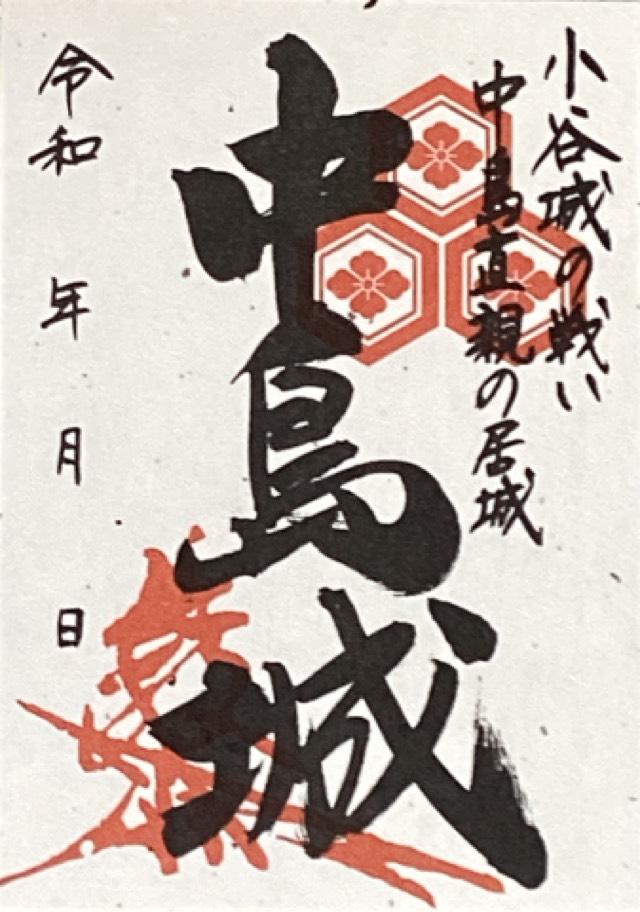 小谷城の戦い
中島直親の居城
中島城
令和　年　月　日